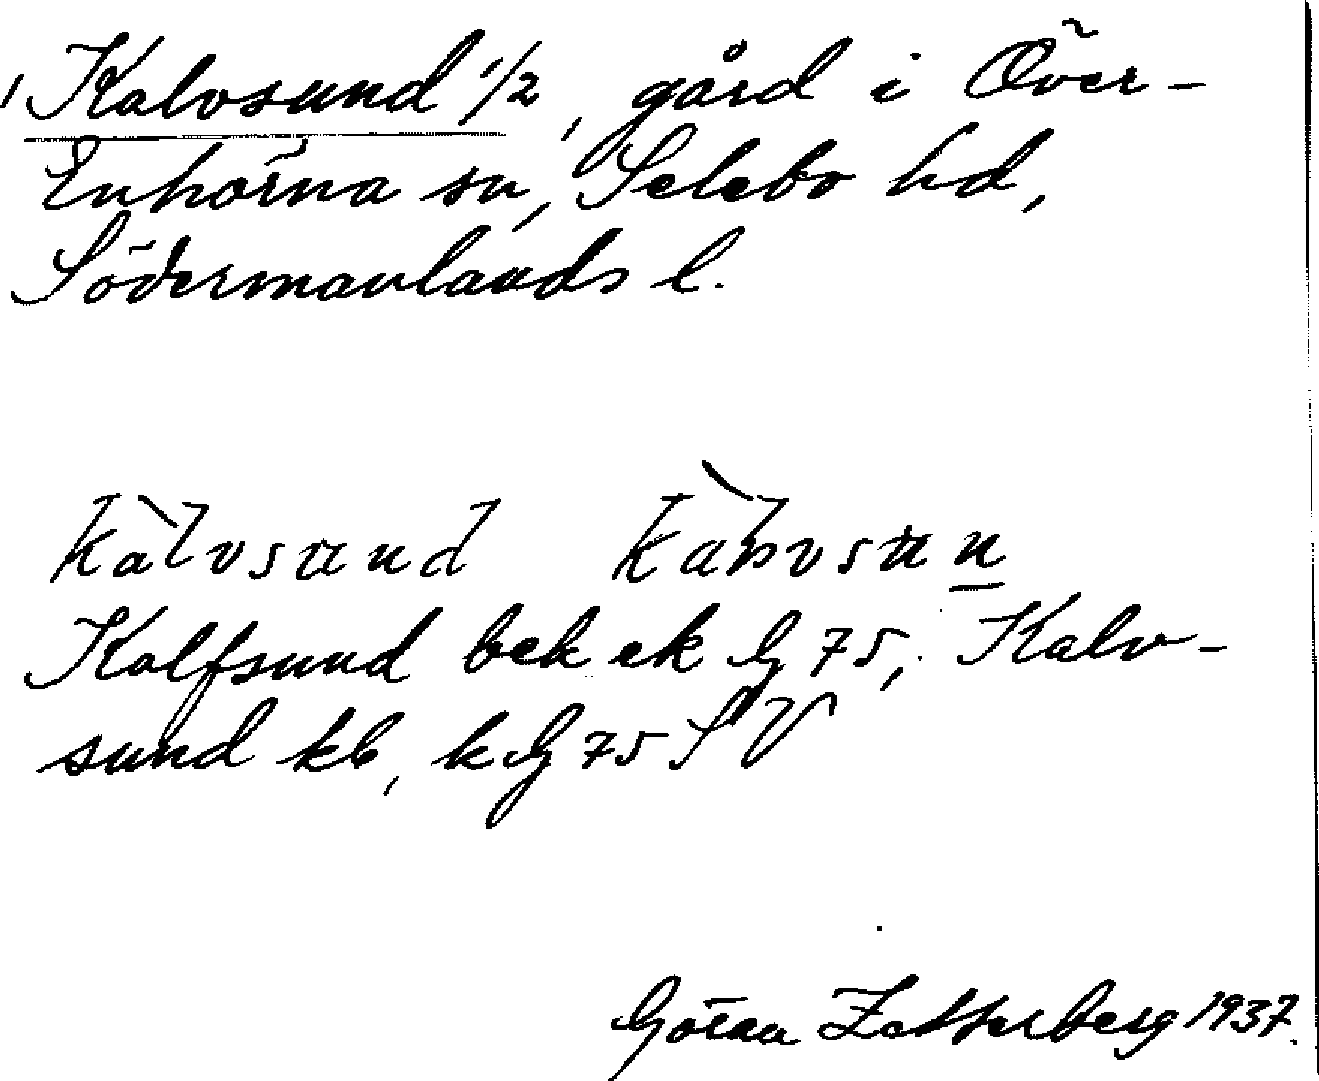 Kalvsund 1/2, gård i Över-
Enhörna sn, Selebo hd,
Södermanlands l.
kàlvsund kàlvsun
Kalfsund bek ek G 75, Kalv-
sund kb, k G 75 SV
Göran Zetterberg 1937.